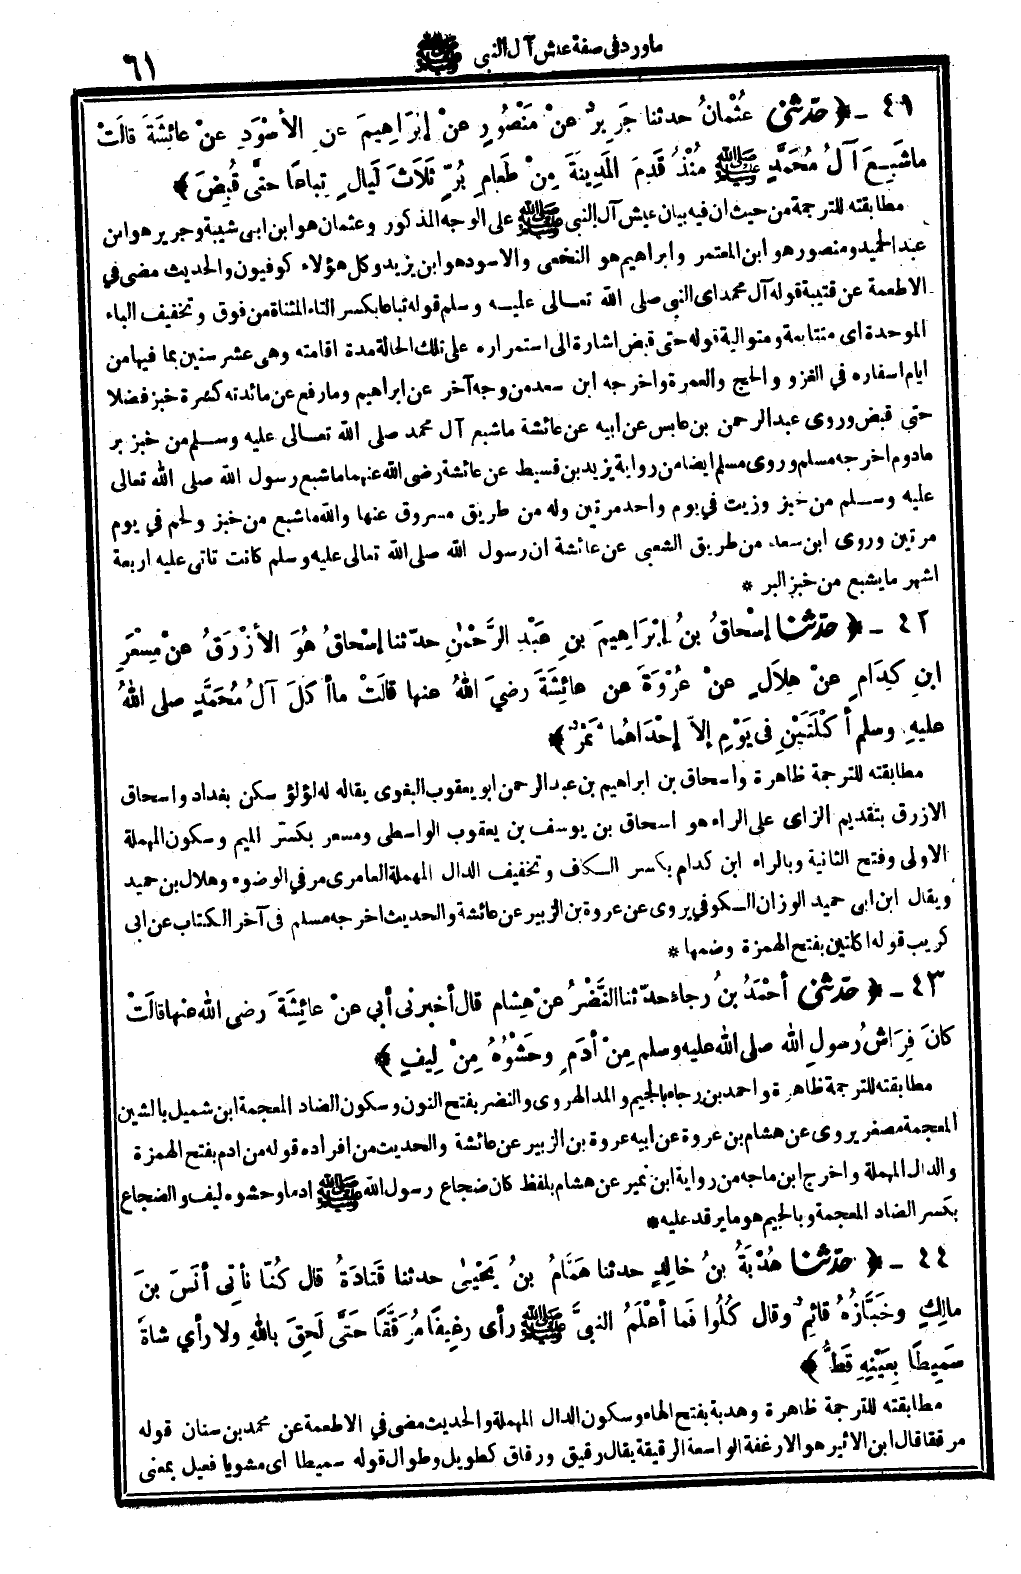 ما ورد في صفة عيش آل النبي ﷺ
٦١
٤١ - ﴿ حدّثني عُثْمانُ حدثنا جَرِيرٌ عنْ مَنْصُورٍ عنْ إبْرَاهِيمَ عنِ الأسْوَدِ عنْ عائِشَةَ قالَتْ
ماشَبِعَ آلُ مُحَمَّدٍ ﷺ مُنْذُ قَدِمَ المَدِينَةَ مِنْ طَعامِ بُرٍّ ثَلَاثَ لَيالٍ تِباعًا حتَّى قُبِضَ ﴾
مطابقته للترجمة من حيث ان فيه بيان عيش آل النبي ﷺ على الوجه المذكور وعثمان هو ابن ابى شيبة وجرير هو ابن
عبد الحميد ومنصور هو ابن المعتمر وابراهيم هو النخعى والاسود هو ابن يزيد وكل هؤلاء كوفيون والحديث مضى في
الاطعمة عن قتيبة قوله آل محمد اى النبي صلى الله تعالى عليه وسلم قوله تباعا بكسر التاء المثناة من فوق وتخفيف الباء
الموحدة اى متتابعة ومتوالية قوله حتى قبض اشارة الى استمراره على تلك الحالة مدة اقامته وهى عشر سنين بما فيها من
ايام اسفاره في الغزو والحج والعمرة واخرجه ابن سعد من وجه آخر عن ابراهيم وما رفع عن مائدته كسرة خبز فضلا
حتى قبض وروى عبد الرحمن بن عابس عن ابيه عن عائشة ماشبع آل محمد صلى الله تعالى عليه وسلم من خبز بر
مادوم اخرجه مسلم وروى مسلم ايضا من رواية يزيد بن قسيط عن عائشة رضى الله عنها ماشبع رسول الله صلى الله تعالى
عليه وسلم من خبز وزيت في يوم واحد مرتين وله من طريق مسروق عنها والله ماشبع من خبز ولحم في يوم
مرتين وروى ابن سعد من طريق الشعبى عن عائشة ان رسول الله صلى الله تعالى عليه وسلم كانت تاتى عليه اربعة
اشهر مايشبع من خبز البر *
٤٢ - ﴿ حدّثنا إسْحاقُ بنُ إبْرَاهِيمَ بنِ عَبْدِ الرَّحْمٰنِ حدّثنا إسْحاقُ هُوَ الأزْرَقُ عنْ مِسْعَرِ
ابنِ كِدَامٍ عنْ هِلَالٍ عنْ عُرْوَةَ عن عائِشَةَ رضيَ اللهُ عنها قالَتْ ماأكَلَ آلُ مُحَمَّدٍ صلى اللهُ
عليهِ وسلم أكْلَتَيْنِ فى يَوْمٍ إلاَّ إحْدَاهُما تَمْرٌ ﴾
مطابقته للترجمة ظاهرة واسحاق بن ابراهيم بن عبد الرحمن ابو يعقوب البغوى يقال له لؤلؤ سكن بغداد واسحاق
الازرق بتقديم الزاى على الراء هو اسحاق بن يوسف بن يعقوب الواسطى ومسعر بكسر الميم وسكون المهملة
الاولى وفتح الثانية وبالراء ابن كدام بكسر الكاف وتخفيف الدال المهملة العامرى مر في الوضوء وهلال بن حميد
ويقال ابن ابى حميد الوزان الكوفي يروى عن عروة بن الزبير عن عائشة والحديث اخرجه مسلم في آخر الكتاب عن ابى
كريب قوله اكلتين بفتح الهمزة وضمها *
٤٣ - ﴿ حدّثني أحْمَدُ بنُ رجاءَ حدّثنا النَّضْرُ عنْ هِشامٍ قال أخبرنى أبي عنْ عائِشَةَ رضى الله عنها قالَتْ
كانَ فِرَاشُ رسولِ الله صلى الله عليه وسلم مِنْ أدَمٍ وحَشْوُهُ مِنْ لِيفٍ ﴾
مطابقته للترجمة ظاهرة واحمد بن رجاء بالجيم والمد الهروى والنضر بفتح النون وسكون الضاد المعجمة ابن شميل بالشين
المعجمة مصغر يروى عن هشام بن عروة عن ابيه عروة بن الزبير عن عائشة والحديث من افراده قوله من ادم بفتح الهمزة
والدال المهملة واخرج ابن ماجه من رواية ابن نمير عن هشام بلفظ كان ضجاع رسول الله ﷺ ادما وحشوه ليف والضجاع
بكسر الضاد المعجمة وبالجيم هو ما يرقد عليه *
٤٤ - ﴿ حدّثنا هُدْبَةُ بنُ خالِدٍ حدثنا هَمَّامُ بنُ يَحْيَى حدثنا قَتادَةُ قال كُنَّا نأتِى أنَسَ بنَ
مالِكٍ وخَبَّازُهُ قائِمٌ وقال كُلُوا فَما أعْلَمُ النبىَّ ﷺ رأى رغِيفًا مُرَقَّقًا حَتَّى لَحِقَ باللهِ ولا رأي شاةً
سَمِيطًا بِعَيْنِهِ قَطُّ ﴾
مطابقته للترجمة ظاهرة وهدبة بفتح الهاء وسكون الدال المهملة والحديث مضى في الاطعمة عن محمد بن سنان قوله
مرققا قال ابن الاثير هو الارغفة الواسعة الرقيقة يقال رقيق ورقاق كطويل وطوال قوله سميطا اى مشويا فعيل بمعنى